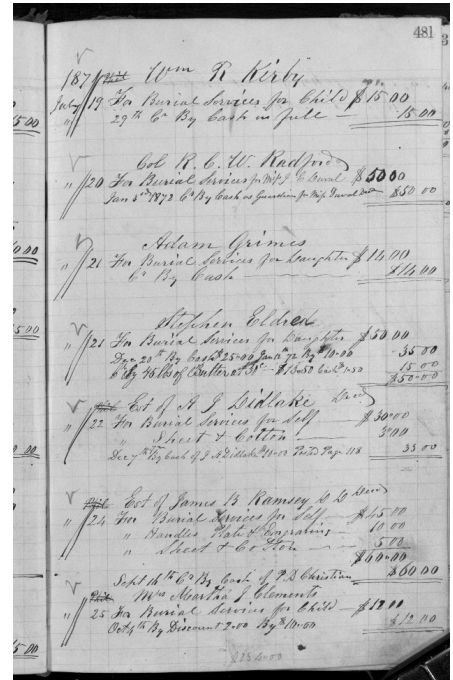 481
1871 Wm R. Kirby
July 19 For Burial Services for Child $15.00
" 29th Cr By Cash in full — 15.00
Col R. C. W. Radford
" 20 For Burial Services for Miss J. C. Duval $50.00
Jan 5th 1872 Cr By Cash as Guardian for Miss Duval Decd $50.00
Adam Grimes
" 21 For Burial Services for Daughter $14.00
Cr By Cash — $14.00
Stephen Eldred
" 21 For Burial Services for Daughter $50.00
Dec 20th By Cash $25.00 Jan 12th 72 By $10.00 35.00
Cr By 45 lbs of Butter at 30c — $13.50 Cash 1.50 15.00
$50.00
Est of A J Didlake Decd
" 22 For Burial Services for Self $30.00
" Sheet & Cotton — 3.00
Dec 7th By Cash of J. A Didlake 10.00 Posted Page 118 33.00
Est of James B Ramsey D D Decd
" 24 For Burial Services for Self — $45.00
" Handles Plate & Engraving — 10.00
" Sheet & Cotton — 5.00
$60.00
Sept 16th Cr By Cash of P. D Christian $60.00
Mrs Martha J Clements
" 25 For Burial Services for Child — $12.00
Oct 4th By Discount 2.00 By $10.00 $12.00